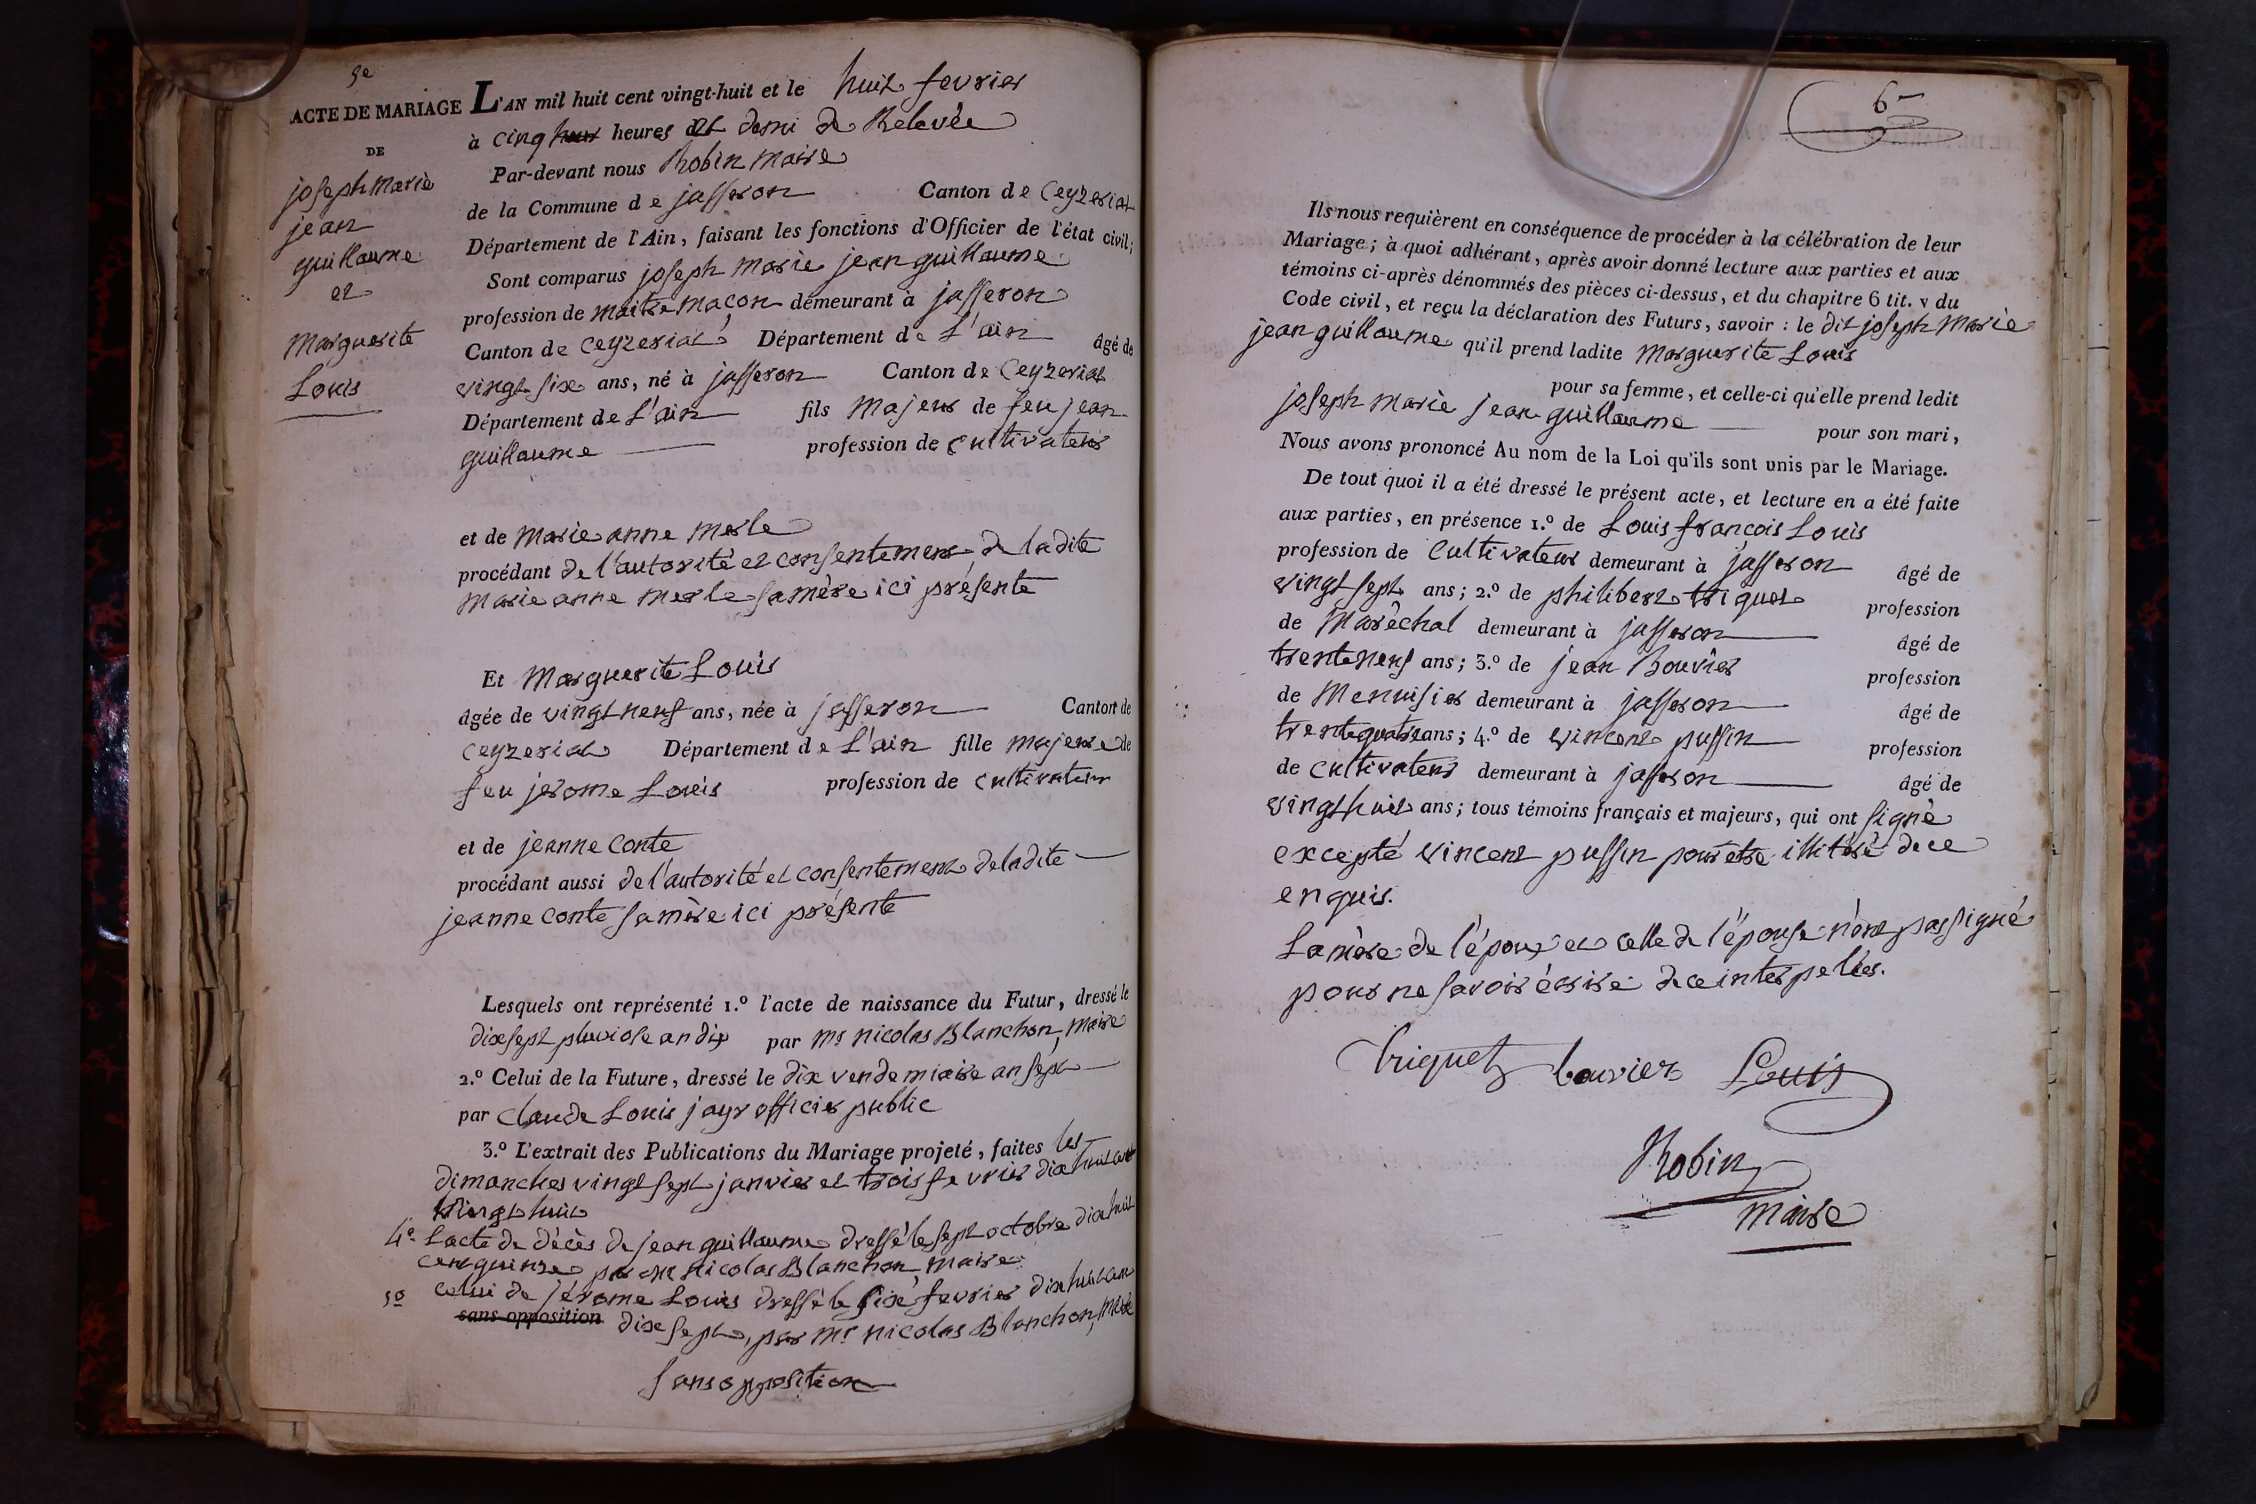 5e
ACTE DE MARIAGE
DE
joseph Marie
jean
guillaume
et
Marguerite
Louis
L'AN mil huit cent vingt-huit et le huit fevrier
à cinq heures et demi de Relevée
Par-devant nous Robin Maire
de la Commune de jasseron Canton de Ceyzeriat
Département de l'Ain, faisant les fonctions d'Officier de l'état civil;
Sont comparus joseph Marie jean guillaume
profession de maitre maçon demeurant à jasseron
Canton de ceyzeriat Département de L'ain âgé de
vingt six ans, né à jasseron Canton de Ceyzeriat
Département de L'ain fils Majeur de feu jean
guillaume profession de cultivateur
et de Marie anne Merle
procédant de l'autorité et consentement de ladite
Marie anne Merle sa mère ici présente
Et Marguerite Louis
âgée de vingt neuf ans, née à jasseron Canton de
ceyzeriat Département de L'ain fille majeure de
feu jerome Louis profession de cultivateur
et de jeanne Conte
procédant aussi de l'autorité et consentement de ladite
jeanne conte sa mère ici présente
Lesquels ont représenté 1.º l'acte de naissance du Futur, dressé le
dix sept pluviose an dix par Mr nicolas Blanchon, Maire
2.º Celui de la Future, dressé le dix vendemiaire an sept
par Claude Louis jayr officier public
3.º L'extrait des Publications du Mariage projeté, faites les
dimanches vingt sept janvier et trois fevrier dix huit cent
vingt huit
4º L'acte de décès de jean guillaume dressé le sept octobre dix huit
cent quinze par Mr Nicolas Blanchon, Maire
5º celui de jérome Louis dressé le six fevrier dix huit cent
sans opposition dix sept, par Mr nicolas Blanchon, Maire
sans opposition
6
Ils nous requièrent en conséquence de procéder à la célébration de leur
Mariage; à quoi adhérant, après avoir donné lecture aux parties et aux
témoins ci-après dénommés des pièces ci-dessus, et du chapitre 6 tit. v du
Code civil, et reçu la déclaration des Futurs, savoir : le dit joseph Marie
jean guillaume qu'il prend ladite Marguerite Louis
pour sa femme, et celle-ci qu'elle prend ledit
joseph Marie jean guillaume pour son mari,
Nous avons prononcé Au nom de la Loi qu'ils sont unis par le Mariage.
De tout quoi il a été dressé le présent acte, et lecture en a été faite
aux parties, en présence 1.º de Louis françois Louis
profession de Cultivateur demeurant à jasseron âgé de
vingt sept ans; 2.º de philibert triquet profession
de Maréchal demeurant à jasseron âgé de
trente neuf ans; 3.º de jean Bouvier profession
de Menuisier demeurant à jasseron âgé de
trente quatre ans; 4.º de vincent puffin profession
de cultivateur demeurant à jasseron âgé de
vingt huit ans; tous témoins français et majeurs, qui ont signé
excepté vincent puffin pour etre illitéré de ce
enquis.
La mère de l'époux et celle de l'épouse n'ont pas signé
pour ne savoir écrire de ce interpelées.
Triquet bouvier Louis
Robin
maire